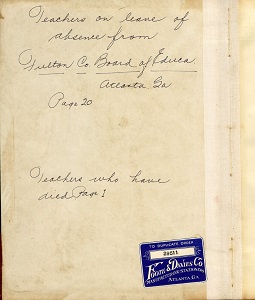 Teachers on leave of
absence from
Fulton Co. Board of Educa.
Atlanta Ga
Page 20
Teachers who have
died Page 1
TO DUPLICATE ORDER
28511
FOOTE & DAVIES CO
MANUFACTURING STATIONERS
ATLANTA, GA.